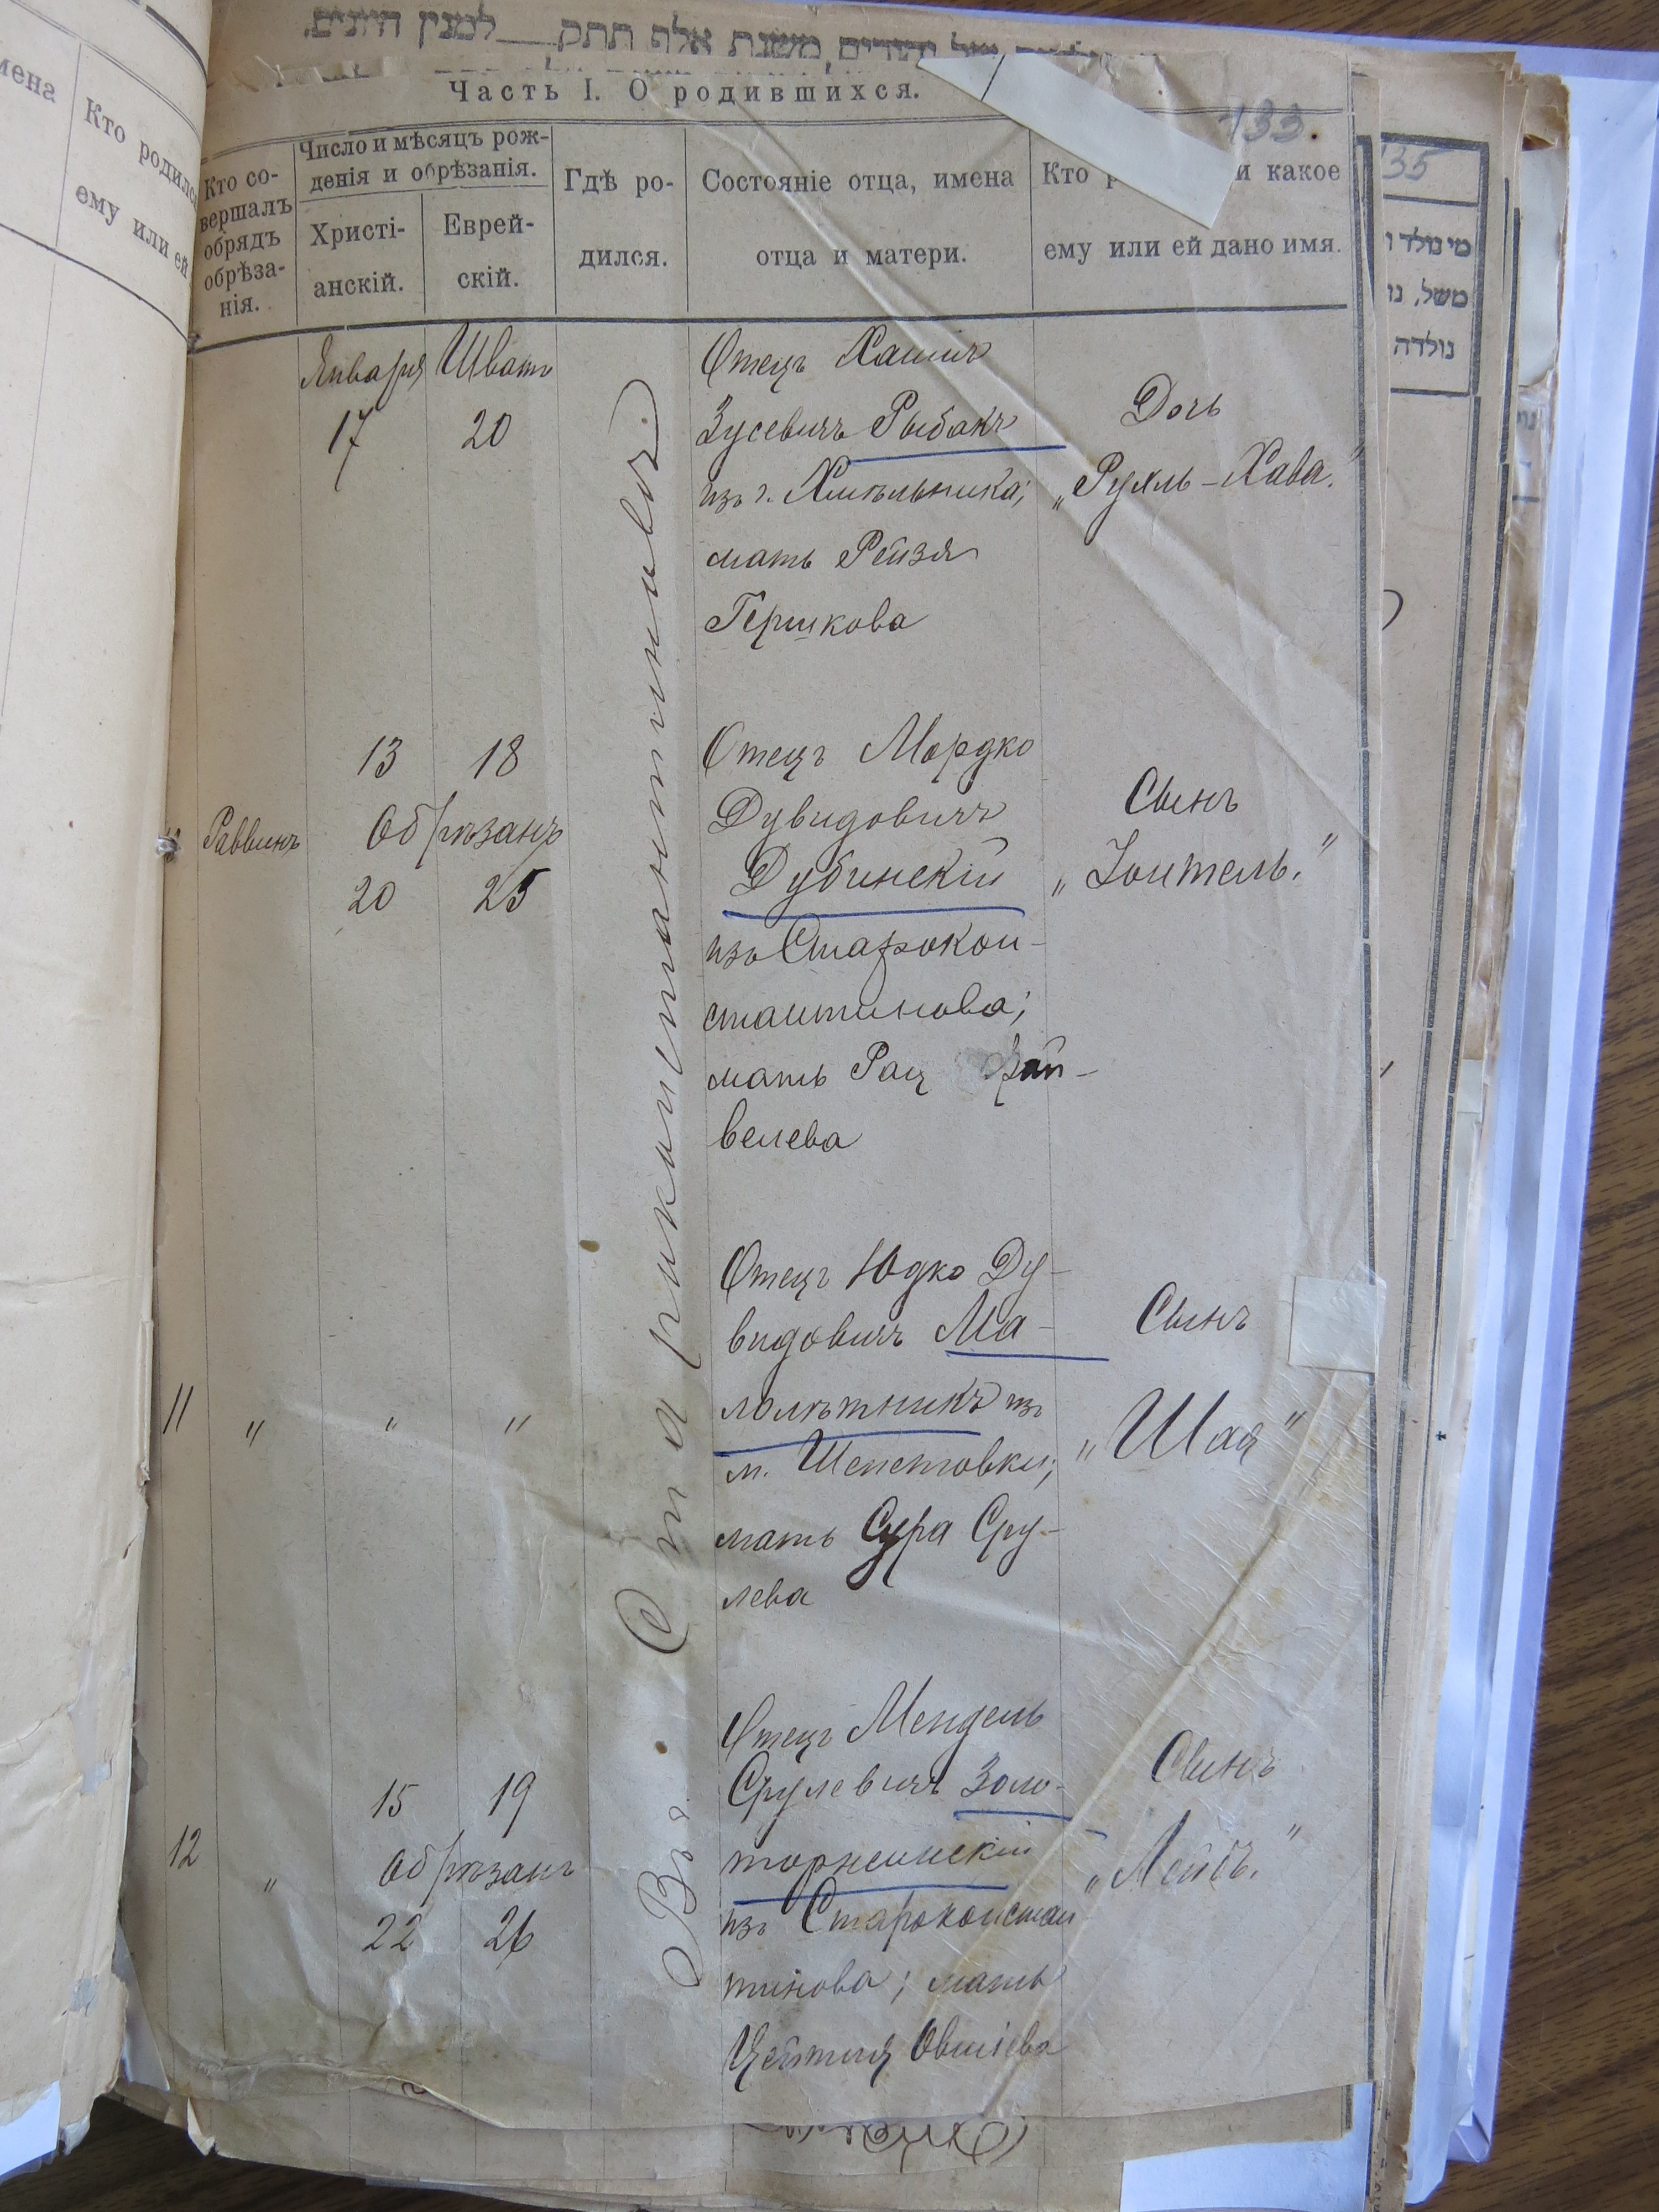 משנת אלף תתק__למנין היונים.
Часть I. О родившихся.
133.
Кто со-
вершалъ
обрядъ
обрѣза-
нія.
Число и мѣсяцъ рож-
денія и обрѣзанія.
Христі-
анскій.
Еврей-
скій.
Гдѣ ро-
дился.
Состояніе отца, имена
отца и матери.
Кто и какое
ему или ей дано имя.
Января Шватъ
17 20
Въ г. Старикоистантиновѣ
Отецъ Хаимъ
Зусевичъ Рыбакъ
изъ г. Хмѣльника;
мать Рейзя
Гершкова
Дочь
„Рухль-Хава."
13 18
Раввинъ Обрѣзанъ
20 25
Отецъ Мордко
Дувидовичъ
Дубинскій
изъ Старокон-
стантинова;
мать Рац Фай-
велева
Сынъ
„Зоитель."
11 „ „ „
Отецъ Юдко Ду-
видовичъ Ма-
лолѣтникъ изъ
м. Шепетовки;
мать Сура Сру-
лева
Сынъ
„Шая"
15 19
12 „ Обрѣзанъ
22 26
Отецъ Мендель
Срулевичъ Золо-
изъ Староконстан
тинова; мать
Овшіева
Сынъ
„Лейбъ."
мена
Кто родилс
ему или ей
135
מי נולד ו
משל, נו
נולדה